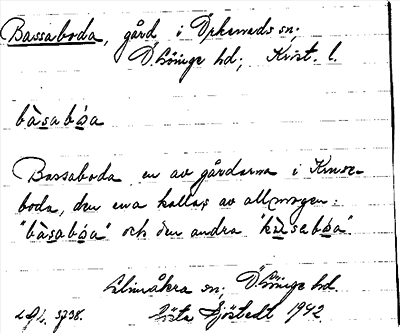 Bassaboda, gård i Örkeneds sn;
Ö. Göinge hd; Krist. l.
bàsabósa
Bassaboda en av gårdarna i Kruse-
boda, den ena kallas av allmogen:
"bàsabósa" och den andra "krùsabósa".
Glimåkra sn; Ö. Göinge hd.
5738. Gösta Sjöstedt 1942